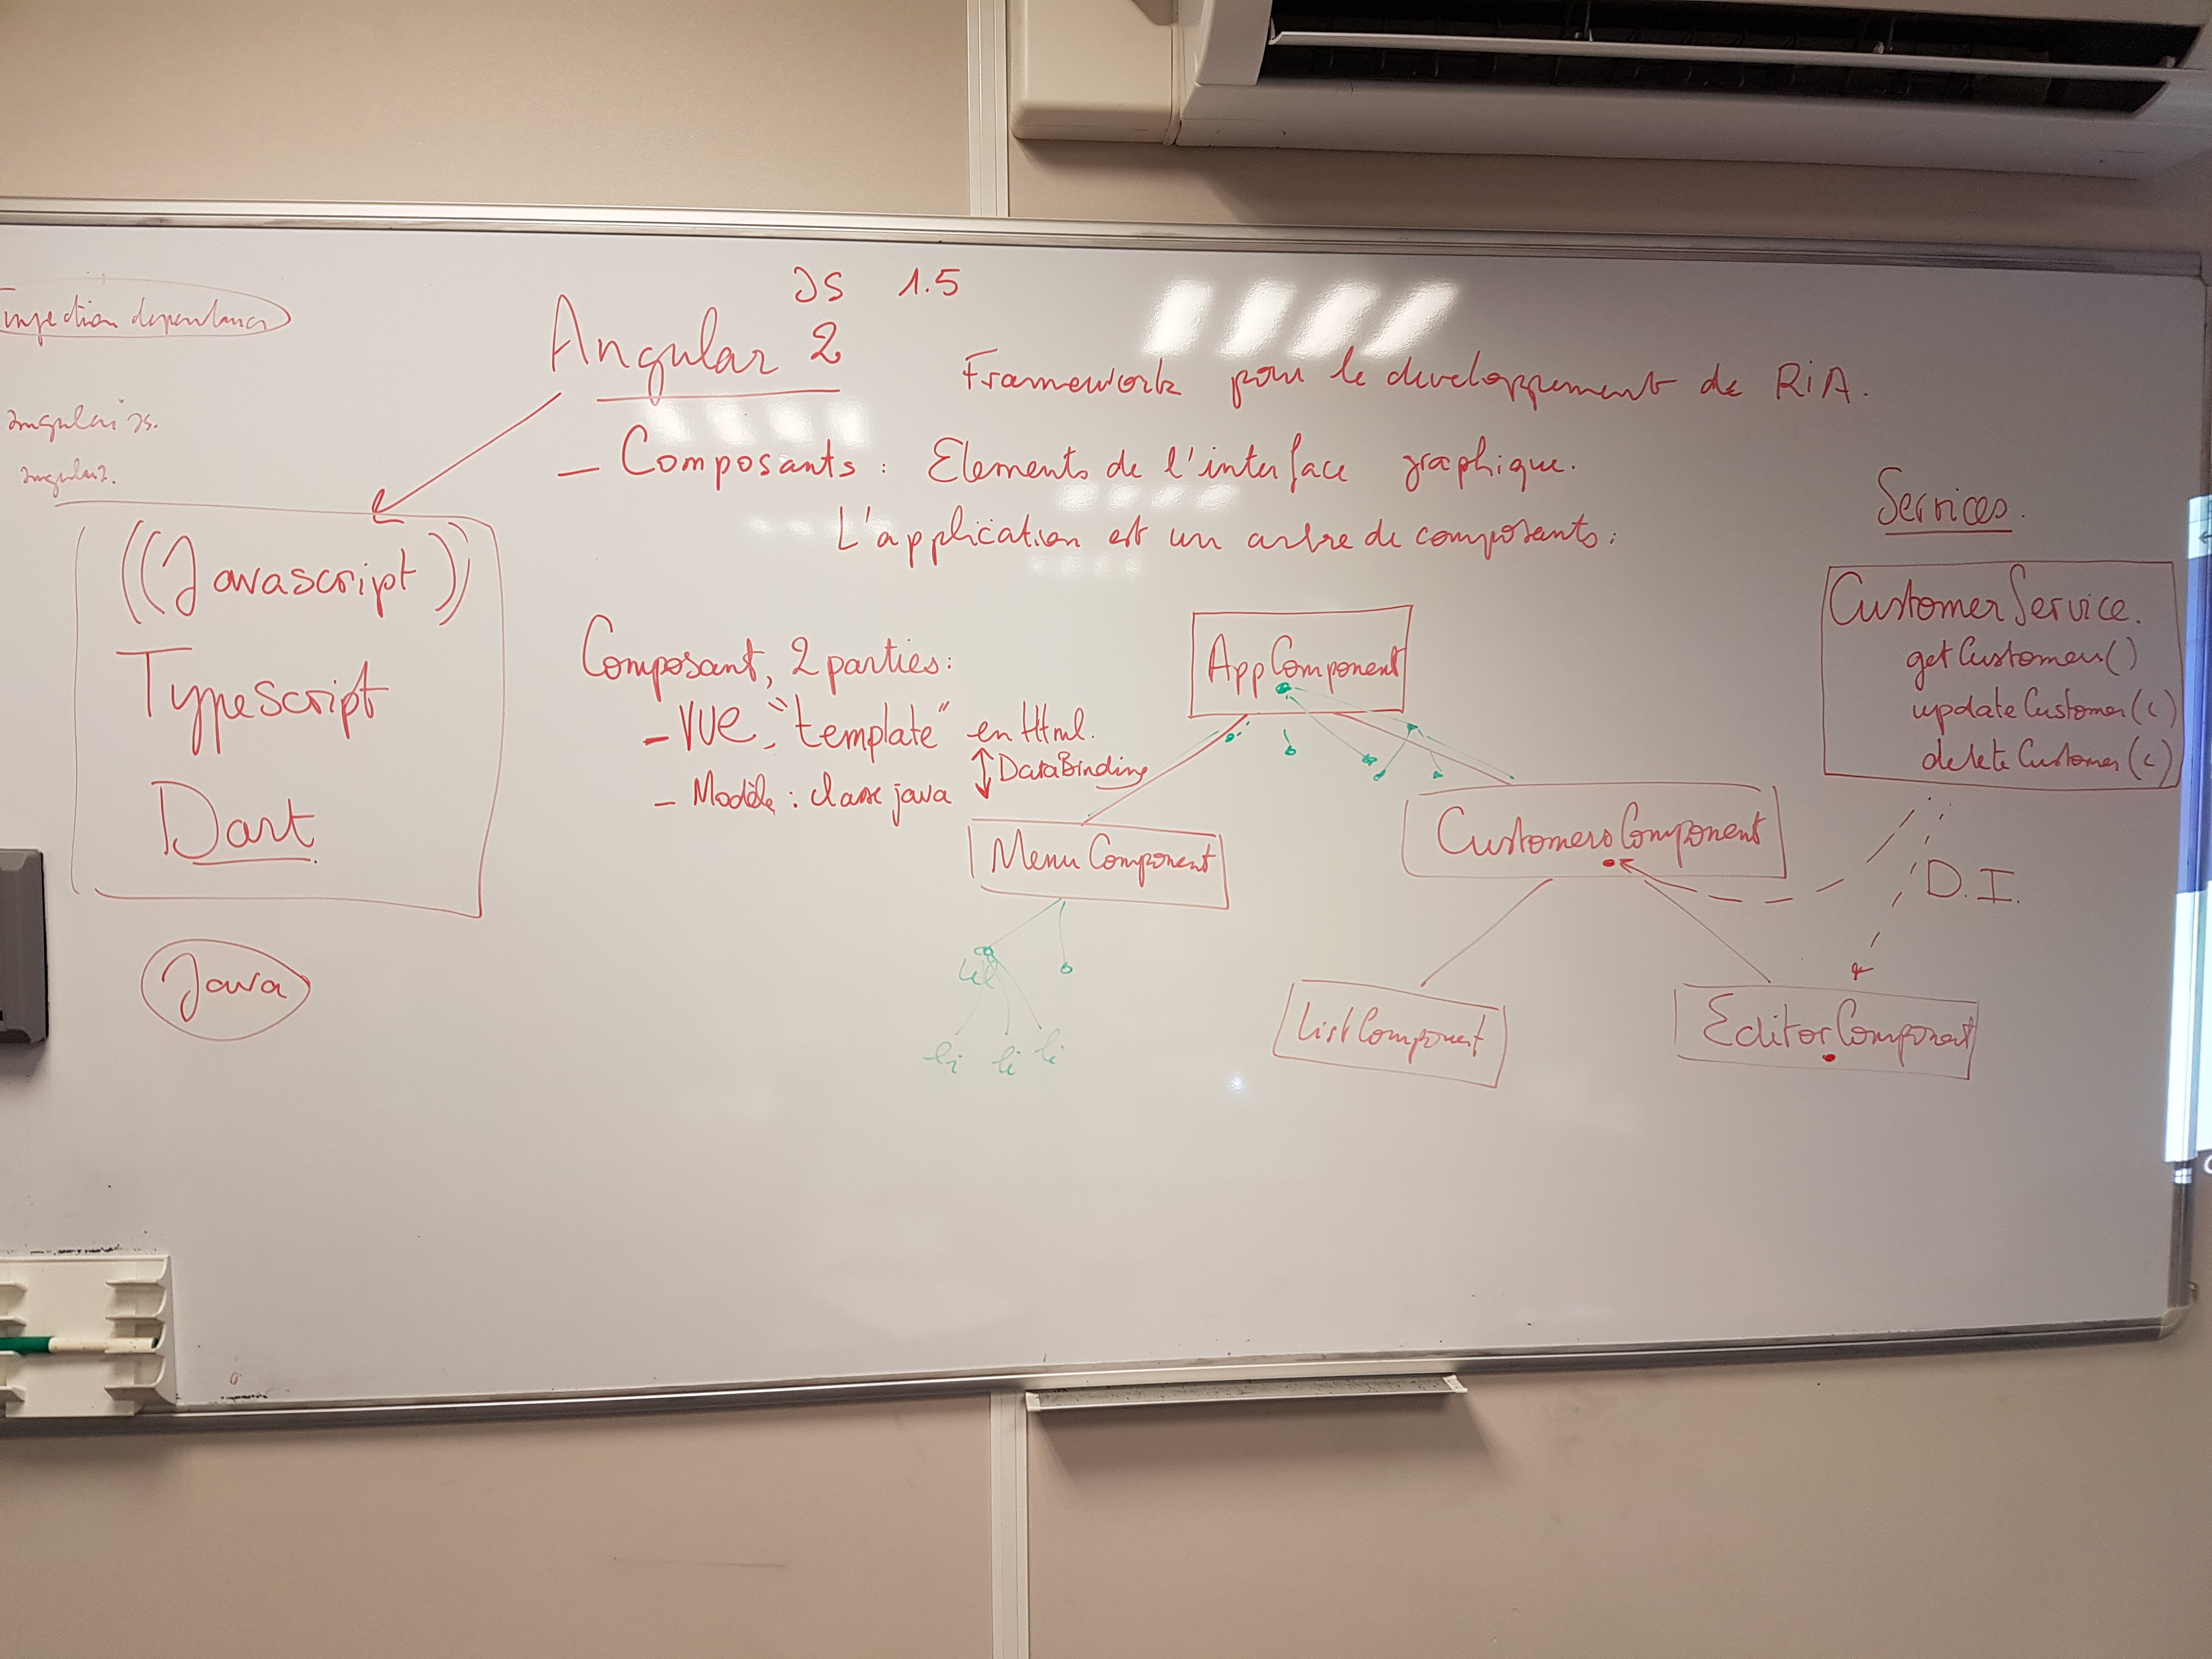 JS 1.5
Injection dependances
Angular 2
Framework pour le developpement de RiA.
angular js.
angular 2.
- Composants : Elements de l'interface graphique.
L'application est un arbre de composants :
Services.
((Javascript))
TypeScript
Dart
Java
Composant, 2 parties :
- VUE, "template" en Html.
DataBinding
- Modèle : classe java
AppComponent
MenuComponent
CustomersComponent
ul
li li li
ListComponent
EditorComponent
CustomerService.
getCustomers()
updateCustomer(c)
deleteCustomer(c)
D.I.